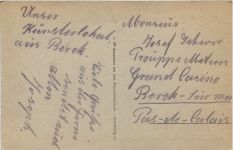 Unser
Künstlerlokal
aus Berck.
Viele Grüße
aus der Ferne
sendet Euch
allen
Joseph
Monsieur
Josef Scherer
Trouppe Meteors
Grand Casino
Berck-sur mer
Pas-de-Calais